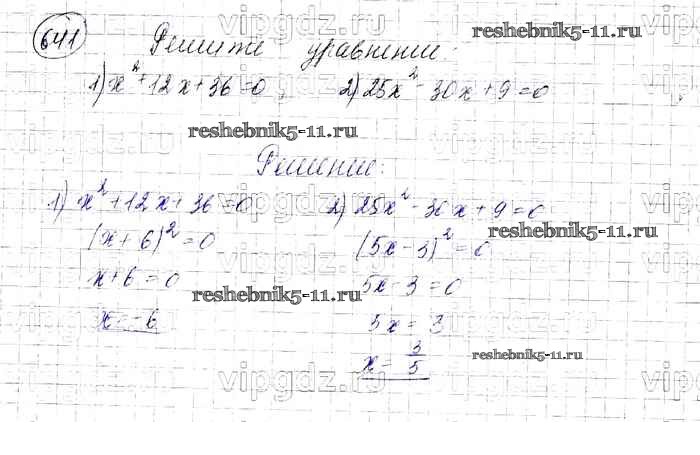 641 Решите уравнение:
1) x² + 12x + 36 = 0, 2) 25x² - 30x + 9 = 0
Решение:
1) x² + 12x + 36 = 0 2) 25x² - 30x + 9 = 0
(x + 6)² = 0 (5x - 3)² = 0
x + 6 = 0 5x - 3 = 0
x = -6 5x = 3
x = 3/5
vipgdz.ru
reshebnik5-11.ru
reshebnik5-11.ru
reshebnik5-11.ru
reshebnik5-11.ru
reshebnik5-11.ru